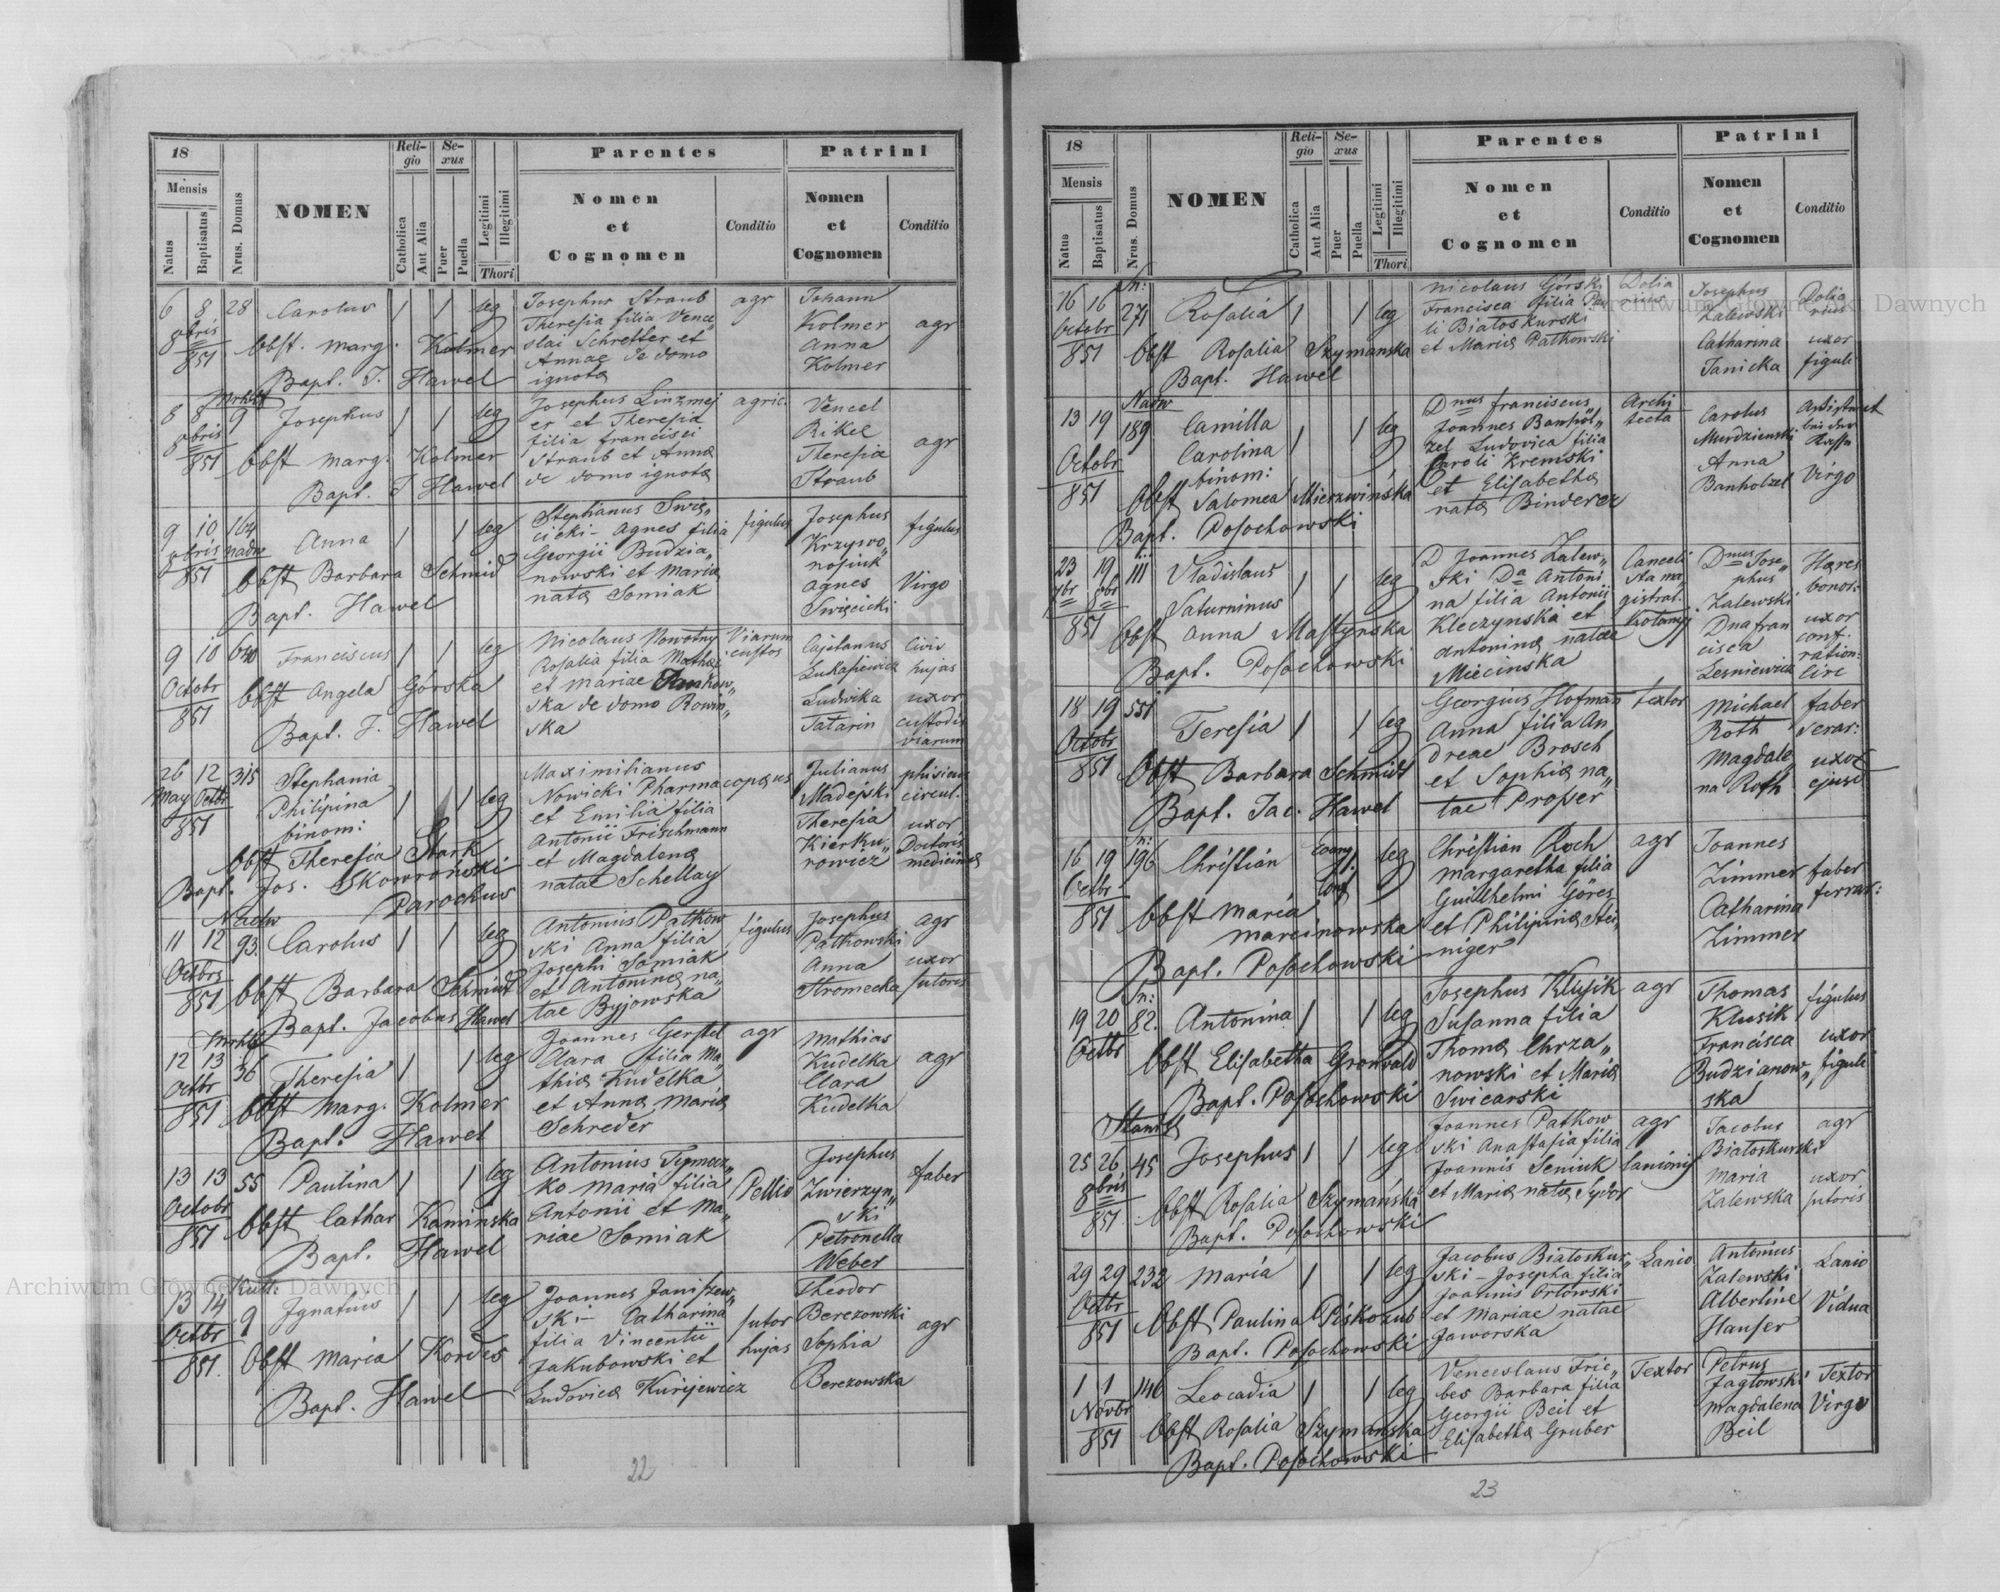 18
Mensis
Natus
Baptisatus
Nrus. Domus
NOMEN
Reli-
gio
Catholica
Aut Alia
Se-
xus
Puer
Puella
Legitimi
Illegitimi
Thori
Parentes
Nomen
et
Cognomen
Conditio
Patrini
Nomen
et
Cognomen
Conditio
6 8 28 Carolus 1 1 leg
8bris
851
Obst. Marg. Kolmer
Bapt. J. Hawel
Josephus Straub
Theresia filia Vence„
slai Schretter et
Annae de domo
ignota
agr
Johann
Kolmer
Anna
Kolmer
agr
8 8 9 Josephus 1 1 leg
8bris
851
Obst Marg. Kolmer
Bapt. J Hawel
Josephus Linzmej
er et Theresia
filia Francisci
Straub et Anna
de domo ignota
agric.
Vencel
Rikel
Theresia
Straub
agr
9 10 164 Anna 1 1 leg
8bris nadw
851
Obst Barbara Schmid
Bapt. Hawel
Stephanus Swie„
cicki - Agnes filia
Georgii Budzia„
nowski et Maria
nata Somiak
figulus
Josephus
Krzywo„
nosiuk
Agnes
Swięcicki
figulus
Virgo
9 10 640 Franciscus 1 1 leg
Octobr
851
Obst Angela Górska
Bapt. J. Hawel
Nicolaus Nowotny
Rosalia filia Mathiæ
et Mariae
ska de domo Rowin„
ska
Viarum
custos
Cajetanus
Łukasiewicz
Ludwika
Tatarin
Civis
hujas
uxor
custodis
viarum
26 12 315 Stephania
May Octbr
851
Philipina
binom: 1 1 leg
Obst Theresia Stark
Bapt. Jos. Skowroński
Parochus
Maximilianus
Nowicki Pharmacopæus
et Emilia filia
Antonii Frischmann
et Magdalena
natae Schellay
Julianus
Madejski
Theresia
Kierku„
rowicz
phisicus
circul.
uxor
Doctoris
medicinæ
Nadw
11 12 93. Carolus 1 1 leg
Octbris
851
Obst Barbara Schmidt
Bapt. Jacobus Hawel
Antonius Patkow
ski Anna filia
Josephi Somiak
et Antonina na„
tae Byjowska
figulus
Josephus
Patkowski
Anna
Stromecka
agr
uxor
sutoris
12 13 36 Theresia 1 1 leg
Octbr
851
Obst Marg. Kolmer
Bapt. Hawel
Joannes Gerstel
Clara filia Ma„
thiæ Kudelka
et Anna Maria
Schreder
agr
Mathias
Kudelka
Clara
Kudelka
agr
13 13 55 Paulina 1 1 leg
Octobr
851
Obst Cathar Kaminska
Bapt. Hawel
Antonius Tymcz„
ko Maria filia
Antonii et Ma„
riae Somiak
Pellio
Josephus
Zwierzyn„
ski
Petronella
Weber
faber
13 14 9 Ignatius 1 1 leg
Octbr
851.
Obst Maria Kordes
Bapt. Hawel
Joannes Janiszew„
ski - Catharina
filia Vincentii
Jakubowski et
Ludovica Kurijewicz
sutor
hujas
Theodor
Berezowski
Sophia
Berezowska
agr
22
18
Mensis
Natus
Baptisatus
Nrus. Domus
NOMEN
Reli-
gio
Catholica
Aut Alia
Se-
xus
Puer
Puella
Legitimi
Illegitimi
Thori
Parentes
Nomen
et
Cognomen
Conditio
Patrini
Nomen
et
Cognomen
Conditio
16 16 271 Rosalia 1 1 leg
Octobr
851
Obst Rosalia Szymanska
Bapt. Hawel
Nicolaus Górski
Francisca filia Pau
li Białoskurski
et Maria Patkowski
Dolia
rius
Josephus
Zalewski
Catharina
Janicka
Dolia
rius
uxor
figuli
Nadw
13 19 189 Camilla
Carolina 1 1 leg
binom:
Octobr
851
Obst Salomea Mierzwińska
Bapt. Posochowski
Dnus Franciscus
Joannes Banhöl„
zel Ludovica filia
Caroli Kremski
et Elisabetha
nata Binderer
Archi
tecta
Carolus
Murdzienski
Anna
Banholzel
Virgo
23 19 111 Vladislaus 1 1 leg
7br 8br
851
Saturninus
Obst Anna Mastyńska
Bapt. Posochowski
D Joannes Zalew„
ski Da Antoni
na filia Antonii
Kleczyńska et
Antonina natae
Miecinska
Cancelli
sta ma„
gistrat.
Dnus Jose„
phus
Zalewski
Dna Fran
cisca
Lesniewicz
Hæres
bonor.
uxor
conf.
ration:
Circ
18 19 551 Teresia 1 1 leg
Octobr
851
Obst Barbara Schmidt
Bapt. Jac. Hawel
Georgius Hofman
Anna filia An
dreae Brosch
et Sophia na„
tae Prosser
textor
Michael
Roth
Magdale„
na Roth
faber
serar:
uxor
ejusd
16 19 196 Christian leg
Octbr
851
Obst Maria
Marcinowska
Bapt. Posochowski
Christian Roch
Margaretha filia
Guilhelmi Göres
et Philipina Stei„
niger
agr
Joannes
Zimmer
Catharina
Zimmer
faber
ferrar:
19 20 82. Antonina 1 1 leg
Octbr
Obst Elisabetha Gronwald
Bapt. Posochowski
Josephus Klusik
Susanna filia
Thoma Chrza„
nowski et Maria
Swicarski
agr
Thomas
Klusik
Francisca
Budzianow„
ska
figulus
uxor
figuli
25 26 45 Josephus 1 1 leg
8bris
851
Obst Rosalia Szymańska
Bapt. Posochowski
Joannes Patkow
ski Anastasia filia
Joannis Seniuk
et Maria nata Sydor
agr
Jacobus
Białoskurski
Maria
Zalewska
agr
uxor
sutoris
29 29 232 Maria 1 1 leg
Octbr
851
Obst Paulina Piskozub
Bapt. Posochowski
Jacobus Białoskur„
ski - Josepha filia
Joannis Orłowski
et Mariae natae
Jaworska
Lanio
Antonius
Zalewski
Albertine
Hauser
Lanio
Vidua
1 1 146 Leocadia 1 1 leg
Novbr
851
Obst Rosalia Szymanska
Bapt. Posochowski
Venceslaus Frie„
bes Barbara filia
Georgii Beil et
Elisabetha Gruber
Textor
Petrus
Jagłowski
Magdalena
Beil
Textor
Virgo
23
Archiwum Główne Akt Dawnych
Archiwum Główne Akt Dawnych